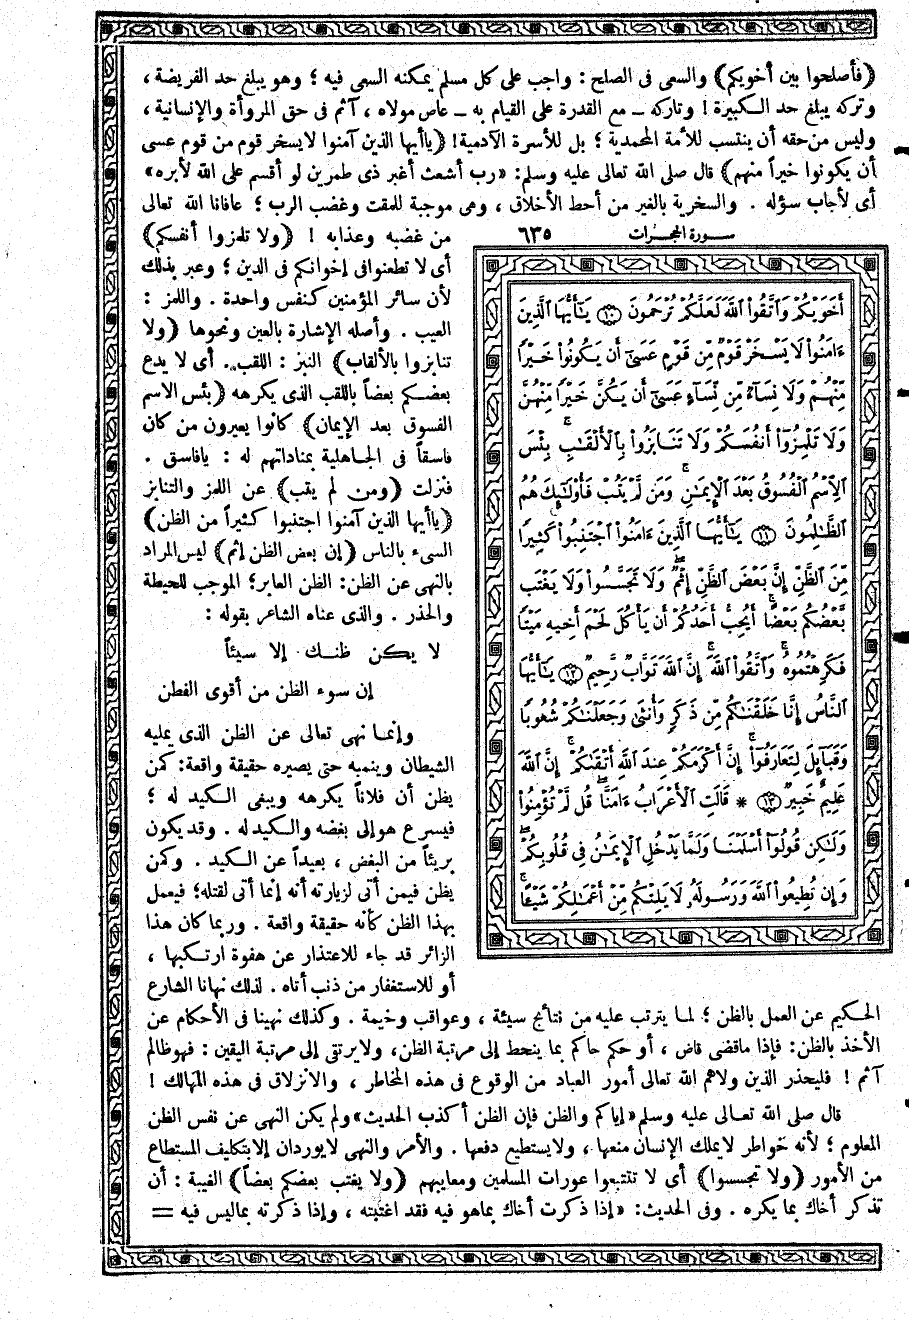 (فأصلحوا بين أخويكم) والسعى فى الصلح : واجب على كل مسلم يمكنه السعى فيه ؛ وهو يبلغ حد الفريضة ،
وتركه يبلغ حد الكبيرة ! وتاركه ــ مع القدرة على القيام به ــ عاص مولاه ، آثم فى حق المروأة والإنسانية ،
وليس من حقه أن ينتسب للأمة المحمدية ؛ بل للأسرة الآدمية ! (ياأيها الذين آمنوا لايسخر قوم من قوم عسى
أن يكونوا خيراً منهم) قال صلى الله تعالى عليه وسلم: «رب أشعث أغبر ذى طمرين لو أقسم على الله لأبره»
أى لأجاب سؤله . والسخرية بالغير من أحط الأخلاق ، وهى موجبة للمقت وغضب الرب ؛ عافانا الله تعالى
من غضبه وعذابه ! (ولا تلمزوا أنفسكم)
أى لا تطعنوا فى إخوانكم فى الدين ؛ وعبر بذلك
لأن سائر المؤمنين كنفس واحدة . واللمز :
العيب . وأصله الإشارة بالعين ونحوها (ولا
تنابزوا بالألقاب) النبز : اللقب . أى لا يدع
بعضكم بعضاً باللقب الذى يكرهه (بئس الاسم
الفسوق بعد الإيمان) كانوا يعيرون من كان
فاسقاً فى الجاهلية بمناداتهم له : يافاسق .
فنزلت (ومن لم يتب) عن اللمز والتنابز
(ياأيها الذين آمنوا اجتنبوا كثيراً من الظن)
السىء بالناس (إن بعض الظن إثم) ليس المراد
بالنهى عن الظن: الظن العابر؛ الموجب للحيطة
والحذر . والذى عناه الشاعر بقوله :
لا يكن ظنك إلا سيئاً
إن سوء الظن من أقوى الفطن
وإنما نهى تعالى عن الظن الذى يمليه
الشيطان وينميه حتى يصيره حقيقة واقعة: كمن
يظن أن فلاناً يكرهه ويبغى الكيد له ؛
فيسرع هو إلى بغضه والكيد له . وقد يكون
بريئاً من البغض ، بعيداً عن الكيد . وكمن
يظن فيمن أتى لزيارته أنه إنما أتى لقتله؛ فيعمل
بهذا الظن كأنه حقيقة واقعة . وربما كان هذا
الزائر قد جاء للاعتذار عن هفوة ارتكبها ،
أو للاستغفار من ذنب أتاه . لذلك نهانا الشارع
سورة الحجرات ٦٣٥
أَخَوَيْكُمْ وَاتَّقُوا اللَّهَ لَعَلَّكُمْ تُرْحَمُونَ ١٠ يَٰٓأَيُّهَا الَّذِينَ
ءَامَنُوا لَا يَسْخَرْ قَوْمٌ مِّن قَوْمٍ عَسَىٰٓ أَن يَكُونُوا خَيْرًا
مِّنْهُمْ وَلَا نِسَآءٌ مِّن نِّسَآءٍ عَسَىٰٓ أَن يَكُنَّ خَيْرًا مِّنْهُنَّ
وَلَا تَلْمِزُوٓا أَنفُسَكُمْ وَلَا تَنَابَزُوا بِالْأَلْقَٰبِ بِئْسَ
الِاسْمُ الْفُسُوقُ بَعْدَ الْإِيمَٰنِ وَمَن لَّمْ يَتُبْ فَأُولَٰٓئِكَ هُمُ
الظَّٰلِمُونَ ١١ يَٰٓأَيُّهَا الَّذِينَ ءَامَنُوا اجْتَنِبُوا كَثِيرًا
مِّنَ الظَّنِّ إِنَّ بَعْضَ الظَّنِّ إِثْمٌ وَلَا تَجَسَّسُوا وَلَا يَغْتَب
بَّعْضُكُم بَعْضًا أَيُحِبُّ أَحَدُكُمْ أَن يَأْكُلَ لَحْمَ أَخِيهِ مَيْتًا
فَكَرِهْتُمُوهُ وَاتَّقُوا اللَّهَ إِنَّ اللَّهَ تَوَّابٌ رَّحِيمٌ ١٢ يَٰٓأَيُّهَا
النَّاسُ إِنَّا خَلَقْنَٰكُم مِّن ذَكَرٍ وَأُنثَىٰ وَجَعَلْنَٰكُمْ شُعُوبًا
وَقَبَآئِلَ لِتَعَارَفُوٓا إِنَّ أَكْرَمَكُمْ عِندَ اللَّهِ أَتْقَىٰكُمْ إِنَّ اللَّهَ
عَلِيمٌ خَبِيرٌ ١٣ * قَالَتِ الْأَعْرَابُ ءَامَنَّا قُل لَّمْ تُؤْمِنُوا
وَلَٰكِن قُولُوٓا أَسْلَمْنَا وَلَمَّا يَدْخُلِ الْإِيمَٰنُ فِى قُلُوبِكُمْ
وَإِن تُطِيعُوا اللَّهَ وَرَسُولَهُۥ لَا يَلِتْكُم مِّنْ أَعْمَٰلِكُمْ شَيْئًا
الحكيم عن العمل بالظن ؛ لما يترتب عليه من نتائج سيئة ، وعواقب وخيمة . وكذلك نهينا فى الأحكام عن
الأخذ بالظن: فإذا ماقضى قاض ، أو حكم حاكم بما ينحط إلى مرتبة الظن، ولا يرتقى إلى مرتبة اليقين : فهو ظالم
آثم ! فليحذر الذين ولاهم الله تعالى أمور العباد من الوقوع فى هذه المخاطر ، والانزلاق فى هذه المهالك !
قال صلى الله تعالى عليه وسلم «إياكم والظن فإن الظن أكذب الحديث» ولم يكن النهى عن نفس الظن
المعلوم ؛ لأنه خواطر لايملك الإنسان منعها ، ولايستطيع دفعها . والأمر والنهى لايوردان إلا بتكليف المستطاع
من الأمور (ولا تجسسوا) أى لا تتتبعوا عورات المسلمين ومعايبهم (ولا يغتب بعضكم بعضاً) الغيبة : أن
تذكر أخاك بما يكره . وفى الحديث: «إذا ذكرت أخاك بماهو فيه فقد اغتبته ، وإذا ذكرته بماليس فيه =